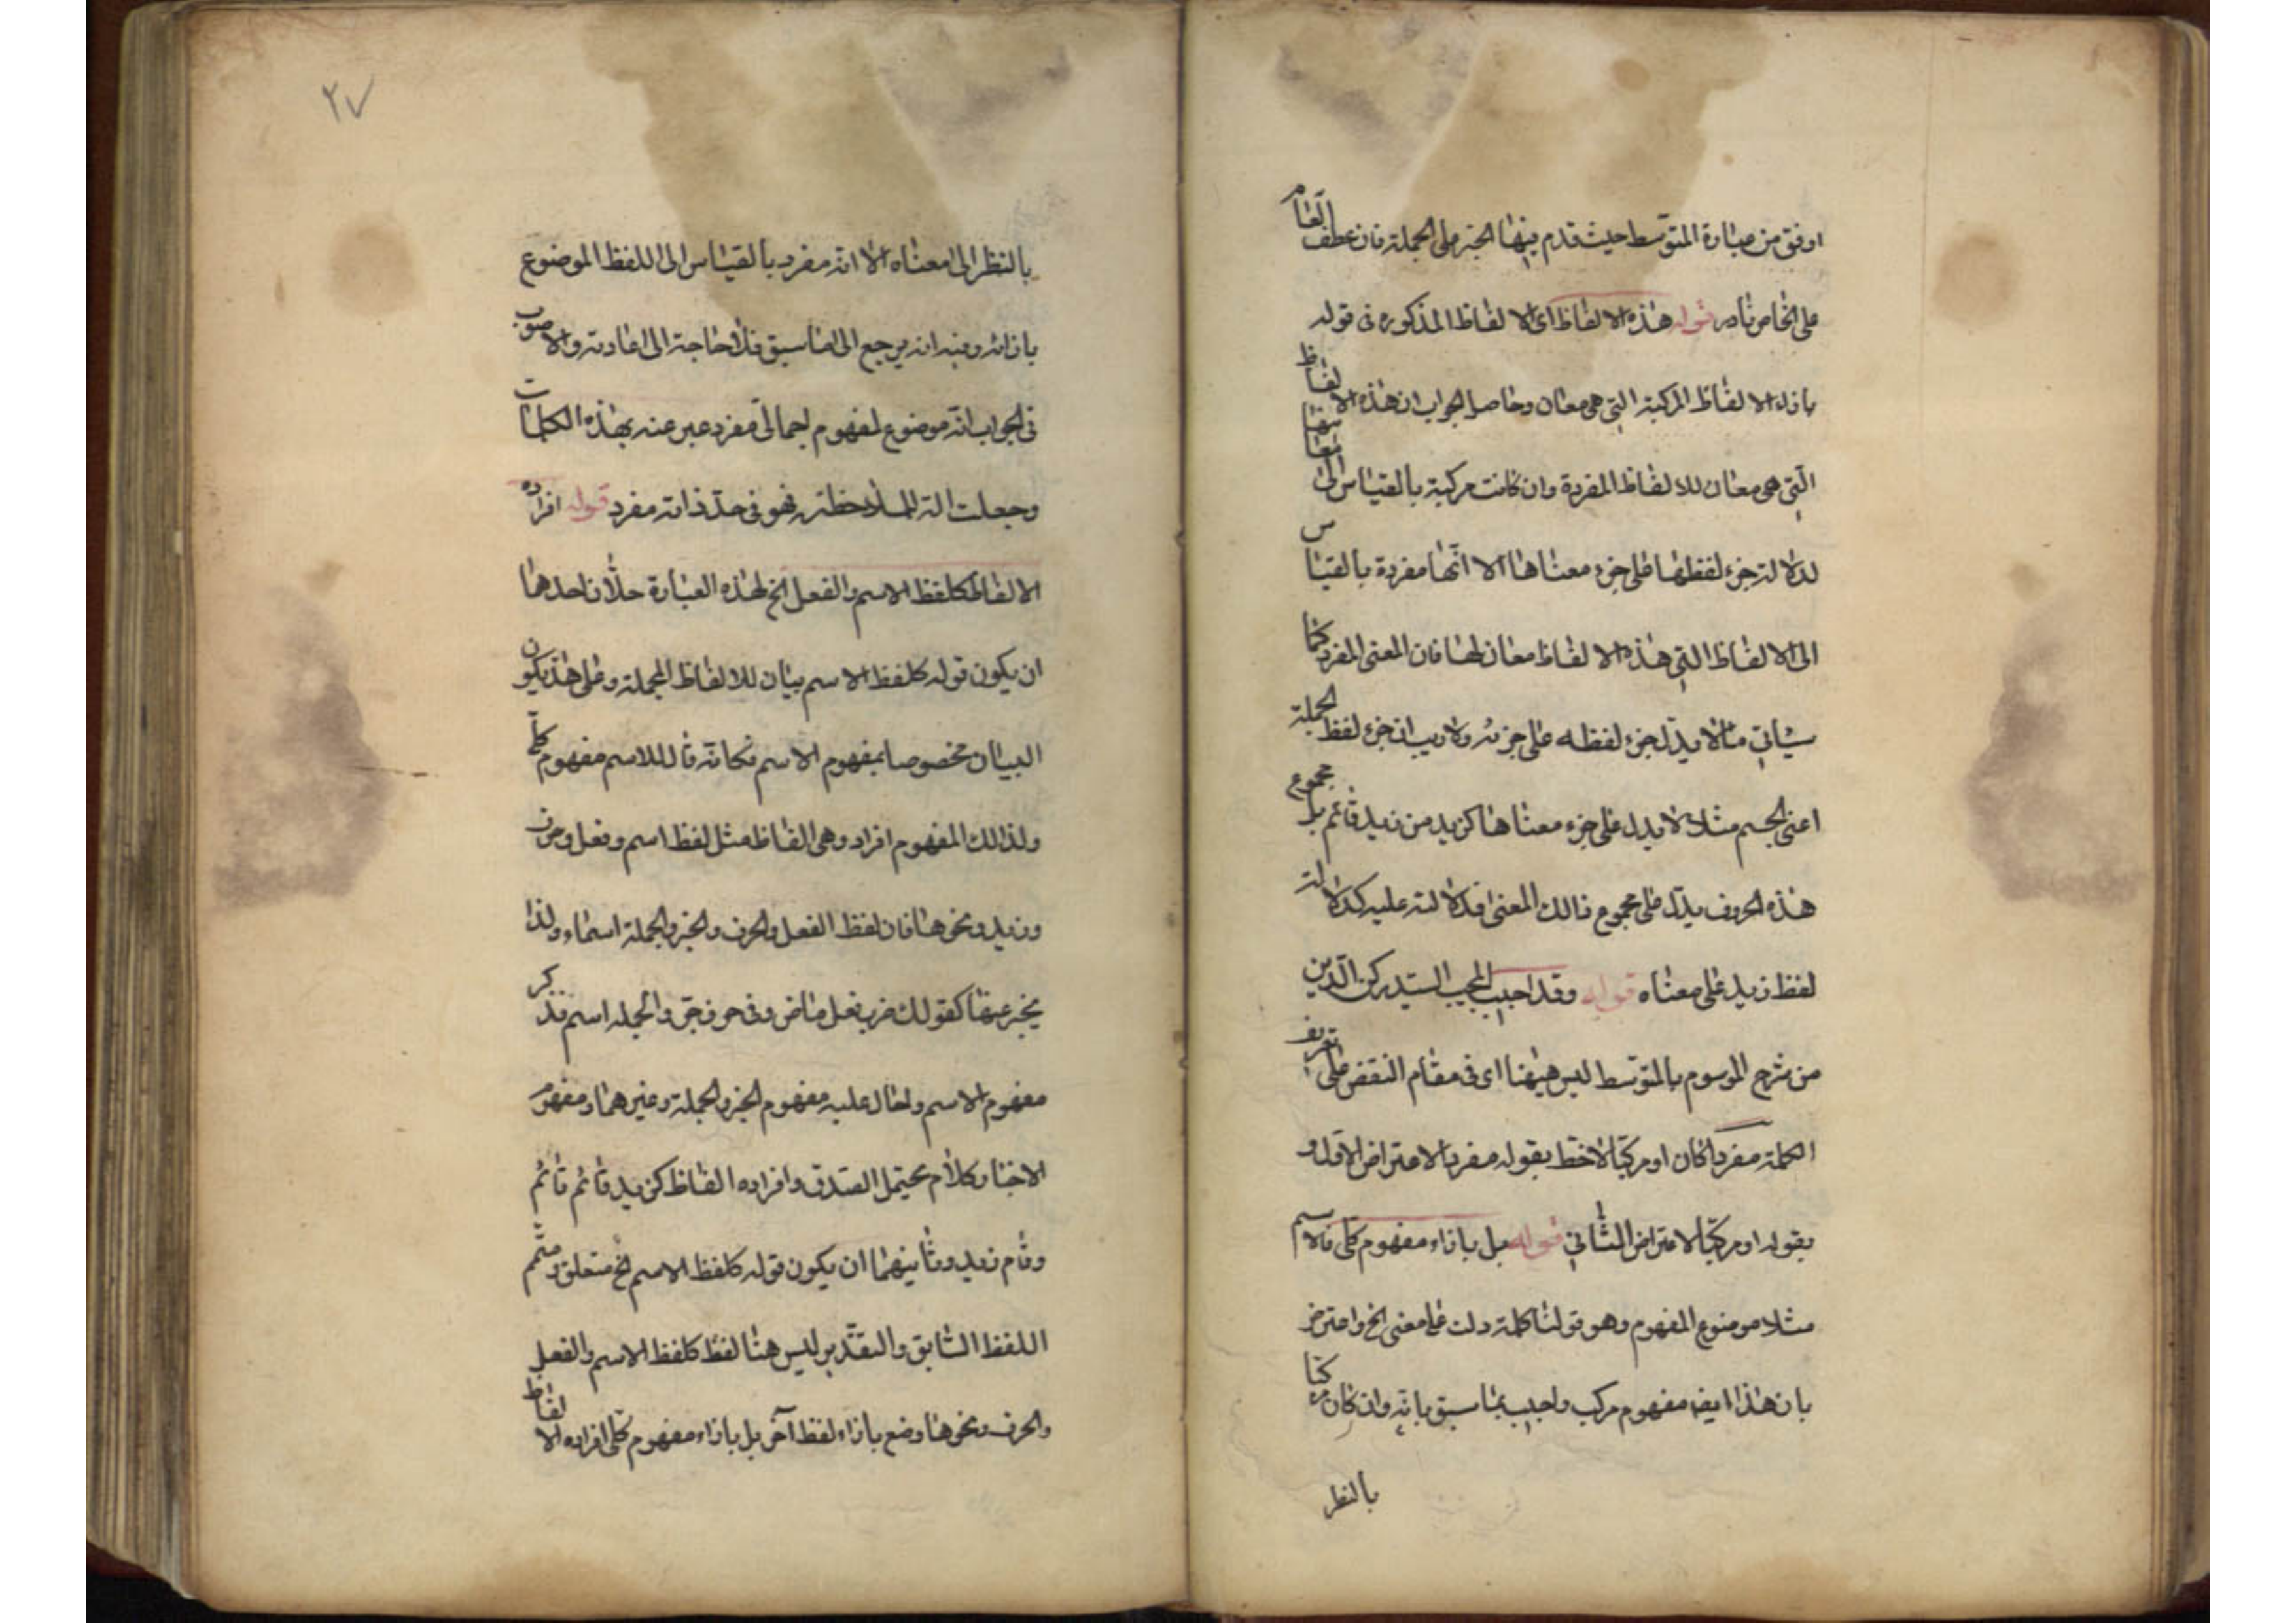 اوفق من عبارة المتوسط حيث قدم فيها الخبر على الجملة فان عطف العام
على الخاص نادر قوله هذه الالفاظ اى الالفاظ المذكورة فى قوله
بازاء الالفاظ المركبة التى هى معان وحاصل الجواب ان هذه الالفاظ
التى هى معان للالفاظ المفردة وان كانت مركبة بالقياس الى معانيها
لدلالة جزء لفظها على جزء معناها الا انها مفردة بالقياس
الى الالفاظ التى هذه الالفاظ معان لها فان المعنى المفرد كما
سياتى ما لا يدل جزء لفظه على جزئه ولا ريب ان جزء لفظ الجملة
اعنى الجيم مثلا لا يدل على جزء معناها كزيد من زيد قائم بل مجموع
هذه الحروف يدل على مجموع ذالك المعنى فدلالته عليه كدلالة
لفظ زيد على معناه قوله وقد اجيب المجيب السيد ركن الدين
من شرح الموسوم بالمتوسط ليس هيهنا اى فى مقام النقض على تعريف
الكلمة مفردا كان او مركبا لاحظ بقوله مفردا الاعتراض الاول و
بقوله او مركبا الاعتراض الثانى قوله بل بازاء مفهوم كلى فالاسم
مثلا موضوع المفهوم وهو قولنا كلمة دلت على معنى الخ واعترض
بان هذا ايضا مفهوم مركب واجيب بما سبق بانه وان كان مركبا
بالنظر
٢٧
بالنظر الى معناه الا انه مفرد بالقياس الى اللفظ الموضوع
بازائه وفيه انه يرجع الى ما سبق فلا حاجة الى اعادته والاصوب
فى الجواب انه موضوع لمفهوم اجمالى مفرد عبر عنه بهذه الكلمات
وجعلت الة لملاحظته فهو فى حد ذاته مفرد قوله افراده
الالفاظ كلفظ الاسم والفعل الخ لهذه العبارة حلان احدهما
ان يكون قوله كلفظ الاسم بيان للالفاظ المجملة وعلى هذا يكون
البيان مخصوصا بمفهوم الاسم فكانه قال للاسم مفهوم كلى
ولذالك المفهوم افراد وهى الفاظ مثل لفظ اسم وفعل وحرف
وزيد ونحوها فان لفظ الفعل والحرف والخبر والجملة اسماء ولذا
يخبر عنها كقولك ضرب فعل ماض وفى حرف جر والجملة اسم فذكر
مفهوم الاسم واحال عليه مفهوم الخبر والجملة وغيرهما ومفهوم
الاخبار كلام يحتمل الصدق وافراده الفاظ كزيد قائم قائم
وقام زيد وثانيهما ان يكون قوله كلفظ الاسم الخ متعلق ومتمم
اللفظ السابق والتقدير ليس هنا لفظ كلفظ الاسم والفعل
والحرف ونحوها وضع بازاء لفظ آخر بل بازاء مفهوم كلى افراده الالفاظ